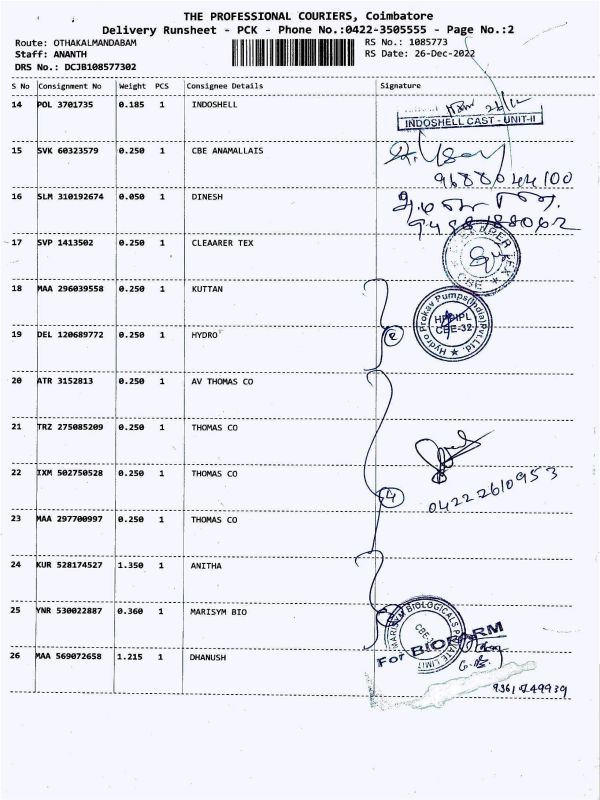 THE PROFESSIONAL COURIERS, Coimbatore
Delivery Runsheet - PCK - Phone No.:0422-3505555 - Page No.:2
Route: OTHAKALMANDABAM RS No.: 1085773
Staff: ANANTH RS Date: 26-Dec-2022
DRS No.: DCJB108577302
S No Consignment No Weight PCS Consignee Details Signature
14 POL 3701735 0.185 1 INDOSHELL
INDOSHELL CAST - UNIT-II
15 SVK 60323579 0.250 1 CBE ANAMALLAIS
9688044100
16 SLM 310192674 0.050 1 DINESH
9488188062
17 SVP 1413502 0.250 1 CLEAARER TEX
TEX CBE
18 MAA 296039558 0.250 1 KUTTAN
Hydro Prokav Pumps(India)Pvt.Ltd.
HPPIPL
CBE-32
19 DEL 120689772 0.250 1 HYDRO
2
20 ATR 3152813 0.250 1 AV THOMAS CO
21 TRZ 275085209 0.250 1 THOMAS CO
22 IXM 502750528 0.250 1 THOMAS CO
4
04222610953
23 MAA 297700997 0.250 1 THOMAS CO
24 KUR 528174527 1.350 1 ANITHA
25 YNR 530022887 0.360 1 MARISYM BIO
MARISYM BIOLOGICALS PRIVATE LIMIT
CBE
For BIO
26 MAA 569072658 1.215 1 DHANUSH